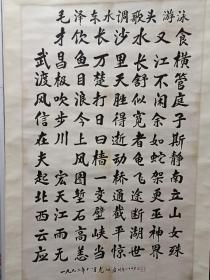 毛泽东水调歌头 游泳
才饮长沙水又食
武昌鱼万里长江横
渡极目楚天舒不管
风吹浪打胜似闲庭
信步今日得宽余子
在川上曰逝者如斯
夫风樯动龟蛇静
起宏图一桥飞架南
北天堑变通途更立
西江石壁截断巫山
云雨高峡出平湖神女
应无恙当惊世界殊